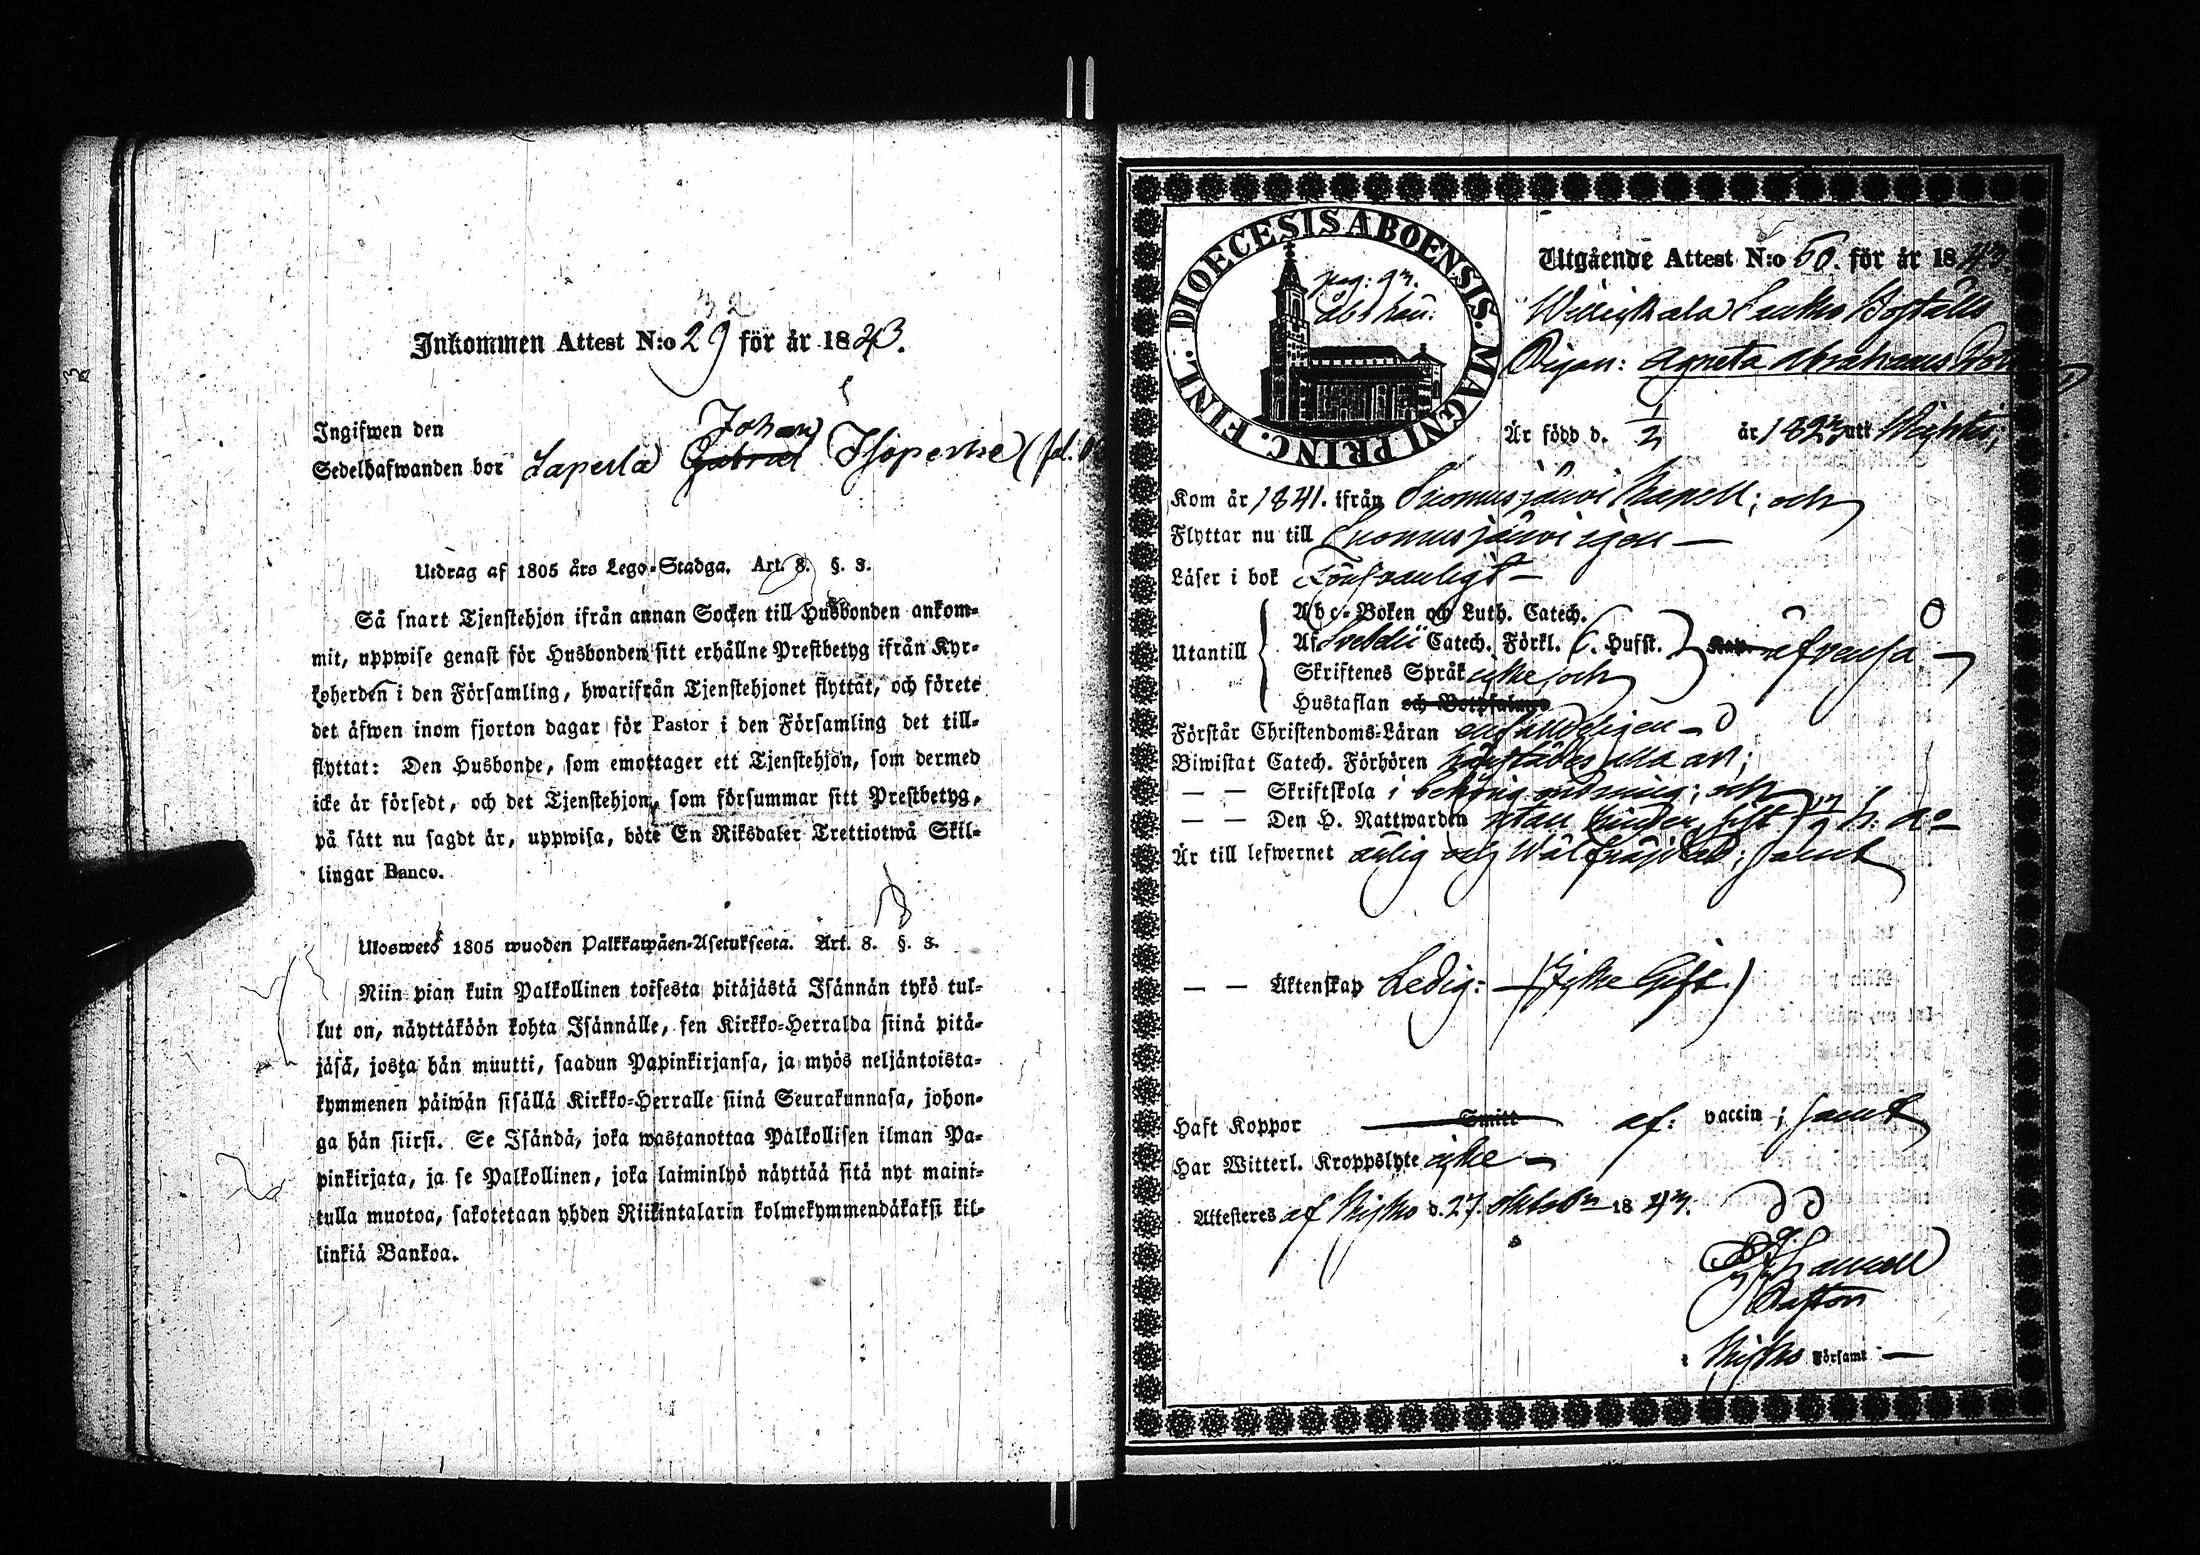 32
Inkommen Attest N:o 29 för år 1843.
Ingifwen den
Johan
Sedelhafwanden bor Laperla Gabriel Isoperhe
Utdrag af 1805 års Lego-Stadga. Art. 8. §. 3.
Så snart Tjenstehjon ifrån annan Socken till Husbonden ankom-
mit, uppwise genast för Husbonden sitt erhållne Prestbetyg ifrån Kyr-
koherden i den Församling, hwarifrån Tjenstehjonet flyttat, och förete
det äfwen inom fjorton dagar för Pastor i den Församling det till-
flyttat: Den Husbonde, som emottager ett Tjenstehjon, som dermed
icke är försedt, och det Tjenstehjon, som försummar sitt Prestbetyg,
på sätt nu sagdt är, uppwisa, böte En Riksdaler Trettiotwå Skil-
lingar Banco.
Uloswetö 1805 wuoden Palkkawäen-Asetuksesta. Art. 8. §. 3.
Niin pian kuin Palkollinen toisesta pitäjästä Isännän tykö tul-
lut on, näyttäköön kohta Isännälle, sen Kirkko-Herralda siinä pitä-
jäsä, josta hän muutti, saadun Papinkirjansa, ja myös neljäntoista-
kymmenen päiwän sisällä Kirkko-Herralle siinä Seurakunnasa, johon-
ga hän siirsi. Se Isändä, joka wastanottaa Palkollisen ilman Pa-
pinkirjata, ja se Palkollinen, joka laiminlyö näyttää sitä nyt maini-
tulla muotoa, sakotetaan yhden Riikintalarin kolmekymmendäkaksi kil-
linkiä Bankoa.
DIOECESIS ABOENSIS. MAGNI PRINC. FINL.
pag: 93.
Utgående Attest N:o 50. för år 1843.
Pigan: Agneta Abrahams
Är född d. 1/2 år 1823 uti
Kom år 1841. ifrån Suomusjärvi Kapell; och
Flyttar nu till Suomusjärvi igen —
Läser i bok Försvarligt —
Abc-Boken och Luth. Catech.
Utantill Af Svebelii Catech. Förkl. Husst.
Skriftenes Språk icke, och
Hustaflan och Botpsalmer
Förstår Christendoms-Läran enfaldeligen —
Biwistat Catech. Förhören
— — Skriftskola i behörig ordning; och
— — Den H. Nattwarden utan hinder, sist
Är till lefwernet ärlig och wälfräjdad; samt
— — Äktenskap Ledig: — (Icke Gift.)
Haft Koppor Smitt af: vaccin; samt
Har Witterl. Kroppslyte icke —
Attesteres af Kisko d. 27. Oktobr 1843.
Pastor
i Kisko Församl —